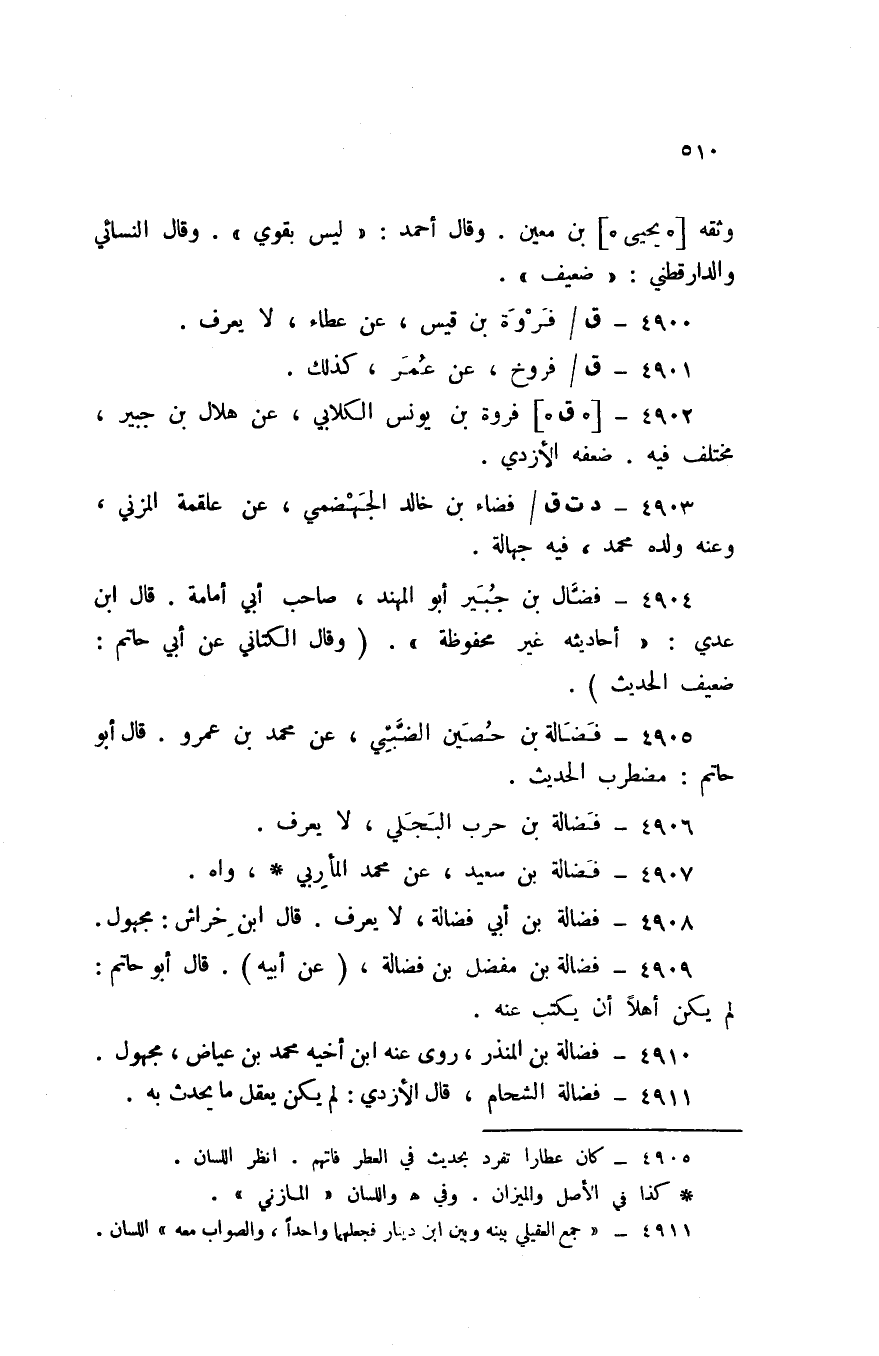 ٥١٠
وثقه [٥ يحيى ٥] بن معين . وقال أحمد : « ليس بقوي » . وقال النسائي
والدارقطني : « ضعيف » .
٤٩٠٠ – ق / فَرْوَة بن قيس ، عن عطاء ، لا يعرف .
٤٩٠١ – ق / فروخ ، عن عُمَر ، كذلك .
٤٩٠٢ – [٥ ق ٥] فروة بن يونس الكلابي ، عن هلال بن جبير ،
مختلف فيه . ضعفه الأزدي .
٤٩٠٣ – د ت ق / فضاء بن خالد الجَهْضمي ، عن علقمة المزني ،
وعنه ولده محمد ، فيه جهالة .
٤٩٠٤ – فضَّال بن جُبَير أبو المهند ، صاحب أبي أمامة . قال ابن
عدي : « أحاديثه غير محفوظة » . ( وقال الكتاني عن أبي حاتم :
ضعيف الحديث ) .
٤٩٠٥ – فَضَالة بن حُصَين الضَّبِّي ، عن محمد بن عمرو . قال أبو
حاتم : مضطرب الحديث .
٤٩٠٦ – فَضالة بن حرب البَجَلي ، لا يعرف .
٤٩٠٧ – فَضالة بن سعيد ، عن محمد المأرِبي * ، واه .
٤٩٠٨ – فضالة بن أبي فضالة ، لا يعرف . قال ابن خِراش : مجهول .
٤٩٠٩ – فضالة بن مفضل بن فضالة ، ( عن أبيه ) . قال أبو حاتم :
لم يكن أهلاً أن يكتب عنه .
٤٩١٠ – فضالة بن المنذر ، روى عنه ابن أخيه محمد بن عياض ، مجهول .
٤٩١١ – فضالة الشحام ، قال الأزدي : لم يكن يعقل ما يحدث به .
٤٩٠٥ – كان عطارا تفرد بحديث في العطر فاتهم . انظر اللسان .
* كذا في الأصل والميزان . وفي ه واللسان « المازني » .
٤٩١١ – « جمع العقيلي بينه وبين ابن دينار فجعلهما واحداً ، والصواب معه » اللسان .